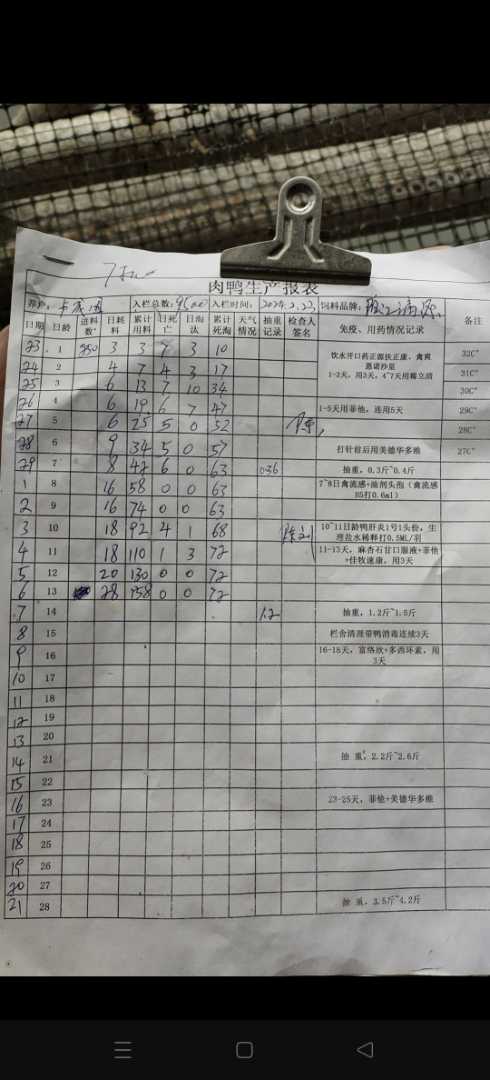 肉鸭生产报表
养户: 入栏总数: 9500 入栏时间: 2024.2.23. 饲料品牌:
日期 日龄 进料数 日耗料 累计用料 日死亡 日淘汰 累计死淘 天气情况 抽重记录 检查人签名 免疫、用药情况记录 备注
23 1 3 3 7 3 10 饮水开口药正源扶正康，禽爽 32C°
恩诺沙星
24 2 4 7 4 3 17 1-3天，用3天，4~7天用霉立清 31C°
25 3 6 13 7 10 34 30C°
26 4 6 19 6 7 47 1-5天用菲他，连用5天 29C°
27 5 6 25 5 0 52 28C°
28 6 9 34 5 0 57 打针前后用美德华多维 27C°
29 7 8 42 6 0 63 036 抽重，0.3斤~0.4斤
1 8 16 58 0 0 63 7~8日禽流感+油剂头孢（禽流感H5打0.6ml）
2 9 16 74 0 0 63
3 10 18 92 4 1 68 10~11日龄鸭肝炎1号1头份，生理盐水稀释打0.5ML/羽
4 11 18 110 1 3 72 11-13天，麻杏石甘口服液+菲他+住牧速康，用3天
5 12 20 130 0 0 72
6 13 28 158 0 0 72
7 14 1.2 抽重，1.2斤~1.5斤
8 15 栏舍清理带鸭消毒连续3天
9 16 16-18天，富络欣+多西环素，用3天
10 17
11 18
12 19
13 20
14 21 抽 重，2.2斤~2.6斤
15 22
16 23 23-25天，菲他+美德华多维
17 24
18 25
19 26
20 27
21 28 抽 重，3.5斤~4.2斤